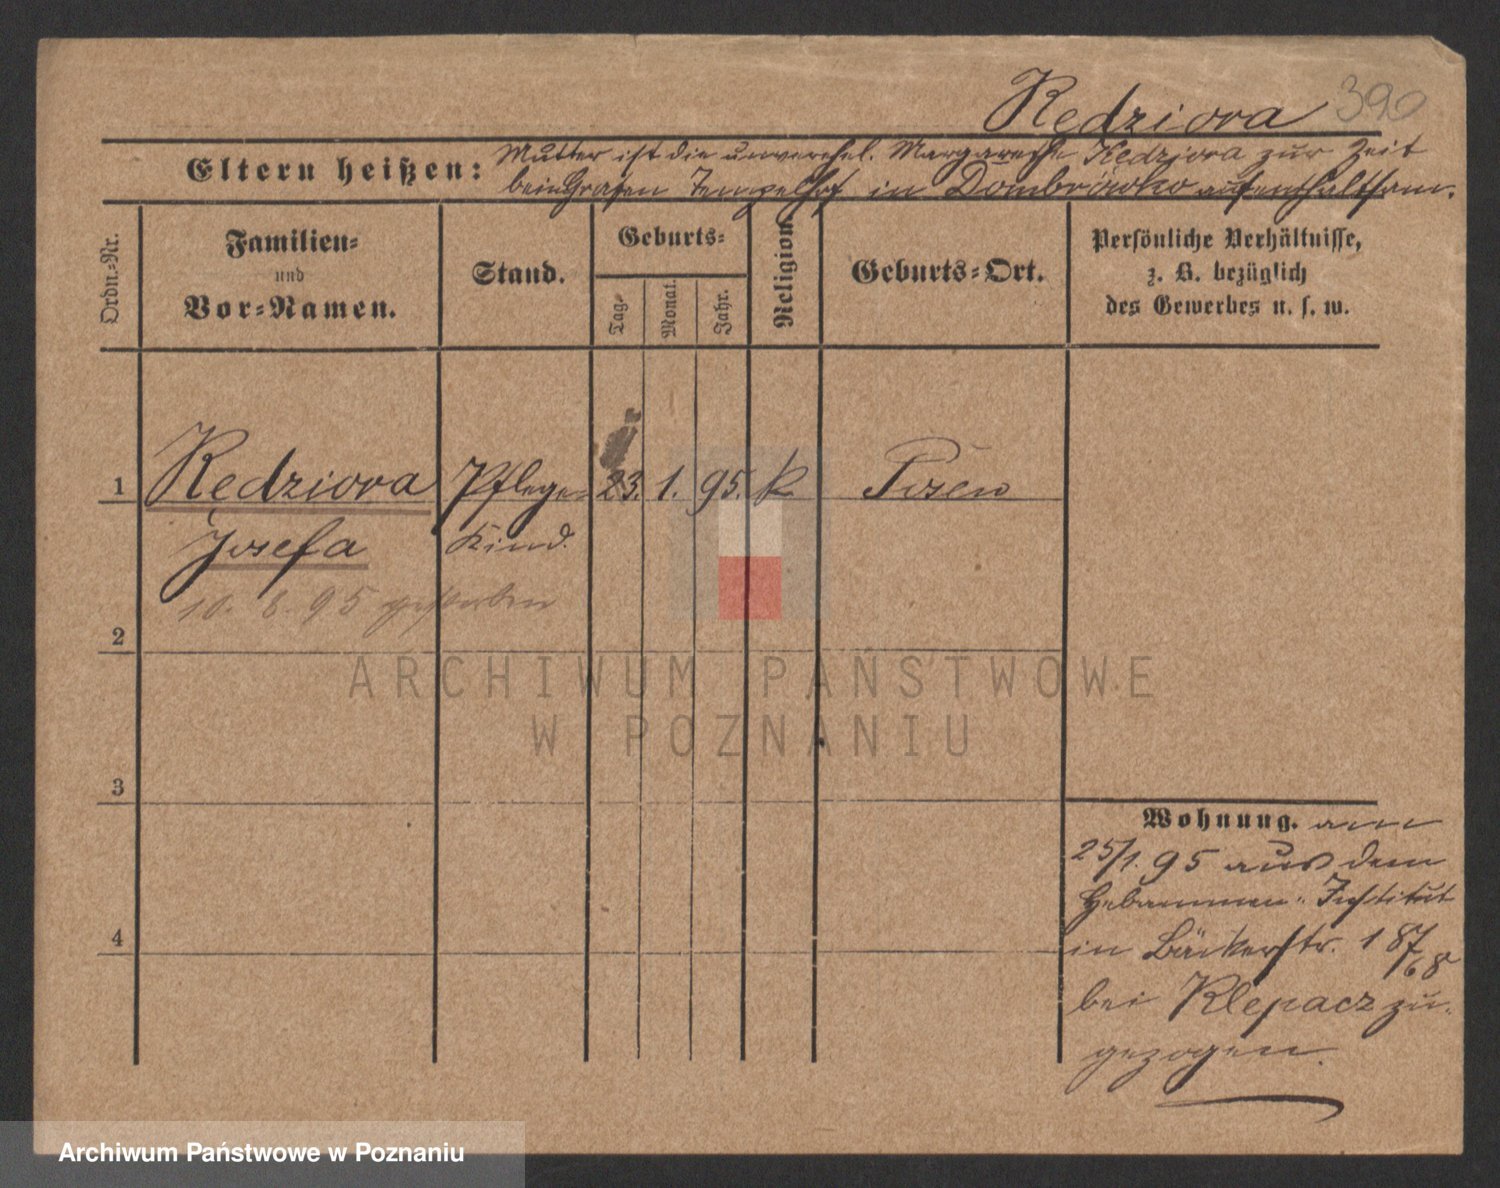 Kedziora 390
Eltern heißen: Mutter ist die unverehel. Margarethe Kedziora zur Zeit
beim Grafen Tempelhof in Dombrówko aufenthaltsam.
Ordn.=Nr.
Familien=
und
Vor=Namen.
Stand.
Geburts=
Tag=
Monat.
Jahr.
Religion.
Geburts=Ort.
Persönliche Verhältnisse,
z. B. bezüglich
des Gewerbes u. s. w.
1 Kedziora Pflege= 23. 1. 95. k Posen
Josefa Kind.
10. 8. 95 gestorben
2
3
4
Wohnung. am
25/1. 95 aus dem
Hebammen-Institut
in Bäckerstr. 187/68
bei Klepacz zu-
gezogen.
ARCHIWUM PAŃSTWOWE
W POZNANIU
Archiwum Państwowe w Poznaniu